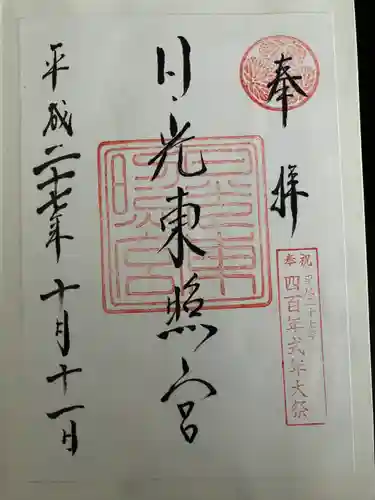 奉拝
奉祝
平成二十七年
四百年式年大祭
日光東照宮
日光東照宮
平成二十七年十月十一日